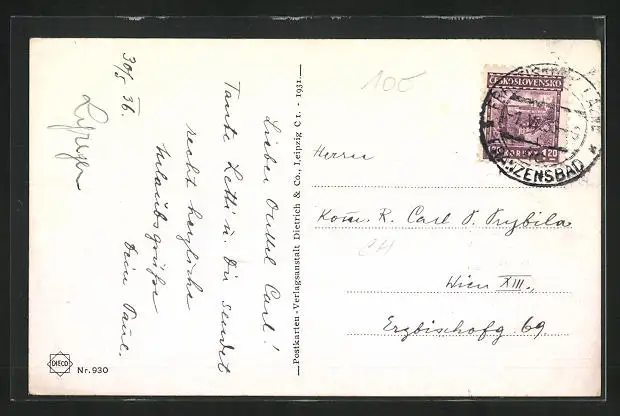 30/5 36.
Lieber Onkel Carl!
Tante Letti u. Dir sendet
recht herzliche
Urlaubsgrüße
Dein Paul.
Postkarten-Verlagsanstalt Dietrich & Co., Leipzig C 1. - 1931.
DIECO
Nr. 930
100
ČESKOSLOVENSKO
KORUNY 1.20
FRANZENSBAD
LÁZNĚ
Herrn
Kom. R. Carl P. Prybila
Wien XIII.,
Erzbischofg 69